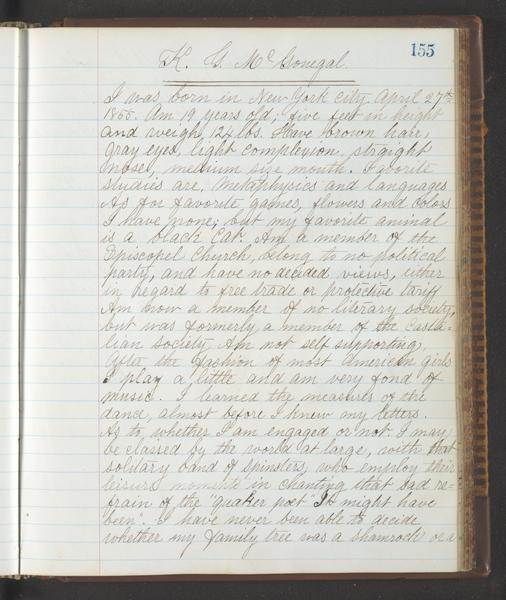 155
K. G. McGonegal
I was born in New York city April 27th
1866. Am 19 years old; five feet in height
and weigh, 124 lbs. Have brown hair,
gray eyes, light complexion, straight
nose, medium size mouth. Favorite
studies are, metaphysics and languages
As for favorite games, flowers and colors
I have none; but my favorite animal
is a black Cat. Am a member of the
Episcopel Church, belong to no political
party, and have no decided views, either
in regard to free trade or protective tariff
Am now a member of no literary society,
but was formerly a member of the Casta-
lian society. Am not self supporting,
After the fashion of most American girls
I play a little and am very fond of
music. I learned the measures of the
dance, almost before I knew my letters.
As to whether I am engaged or not. I may
be classed by the world at large, with that
solitary band of spinsters, who employ their
leisure moments in chanting that sad re-
frain of the "quaker poet" It might have
been". I have never been able to decide
whether my family tree was a shamrock or a